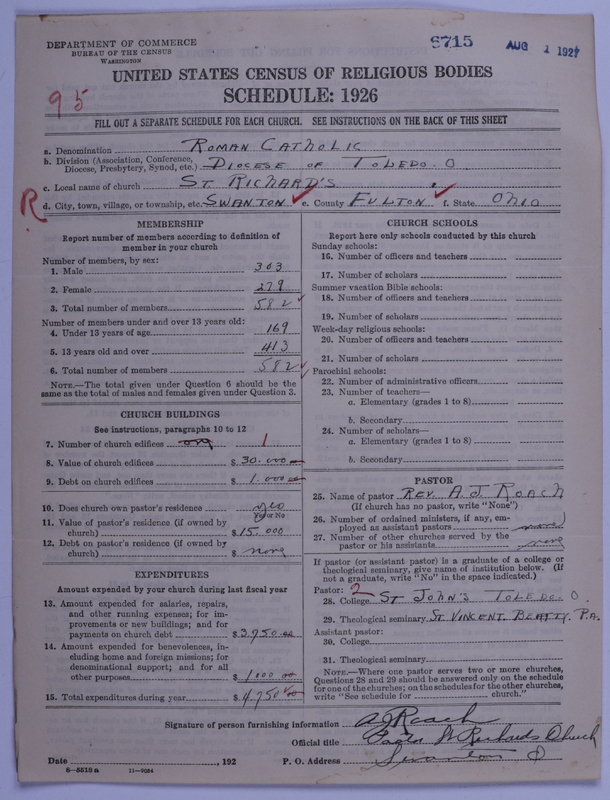 DEPARTMENT OF COMMERCE
BUREAU OF THE CENSUS
WASHINGTON
S715 AUG 1 1927
UNITED STATES CENSUS OF RELIGIOUS BODIES
SCHEDULE: 1926
95
FILL OUT A SEPARATE SCHEDULE FOR EACH CHURCH. SEE INSTRUCTIONS ON THE BACK OF THIS SHEET
a. Denomination ROMAN CATHOLIC
b. Division (Association, Conference, Diocese, Presbytery, Synod, etc.) DIOCESE OF TOLEDO. O
c. Local name of church ST RICHARD'S
R d. City, town, village, or township, etc. SWANTON e. County FULTON f. State OHIO
MEMBERSHIP
Report number of members according to definition of
member in your church
Number of members, by sex:
1. Male 303
2. Female 279
3. Total number of members 582
Number of members under and over 13 years old:
4. Under 13 years of age 169
5. 13 years old and over 413
6. Total number of members 582
NOTE.—The total given under Question 6 should be the
same as the total of males and females given under Question 3.
CHURCH BUILDINGS
See instructions, paragraphs 10 to 12
7. Number of church edifices one 1
8. Value of church edifices $ 30.000
9. Debt on church edifices $ 1.000 00
10. Does church own pastor's residence yes
Yes or No
11. Value of pastor's residence (if owned by
church) $ 15.000
12. Debt on pastor's residence (if owned by
church) $ none
EXPENDITURES
Amount expended by your church during last fiscal year
13. Amount expended for salaries, repairs,
and other running expenses; for im-
provements or new building; and for
payments on church debt $ 3.750 00
14. Amount expended for benevolences, in-
cluding home and foreign missions; for
denominational support; and for all
other purposes $ 1000 00
15. Total expenditures during year $ 4750 00
CHURCH SCHOOLS
Report here only schools conducted by this church
Sunday schools:
16. Number of officers and teachers
17. Number of scholars
Summer vacation Bible schools:
18. Number of officers and teachers
19. Number of scholars
Week-day religious schools:
20. Number of officers and teachers
21. Number of scholars
Parochial schools:
22. Number of administrative officers
23. Number of teachers—
a. Elementary (grades 1 to 8)
b. Secondary
24. Number of scholars—
a. Elementary (grades 1 to 8)
b. Secondary
PASTOR
25. Name of pastor REV. A. J. ROACH
(If church has no pastor, write "None")
26. Number of ordained ministers, if any, em-
ployed as assistant pastors none
27. Number of other churches served by the
pastor or his assistants none
If pastor (or assistant pastor) is a graduate of a college or
theological seminary, give name of institution below. (If
not a graduate, write "No" in the space indicated.)
Pastor: 2
28. College ST JOHN'S TOLEDO. O
29. Theological seminary ST. VINCENT BEATTY, P.A.
Assistant pastor:
30. College
31. Theological seminary
NOTE.—Where one pastor serves two or more churches,
Questions 28 and 29 should be answered only on the schedule
for one of the churches; on the schedules for the other churches,
write "See schedule for church."
Signature of person furnishing information A J Roach
Official title Pastor St Richards Church
Date , 192 P. O. Address Swanton O
8-5518 a 11-9034